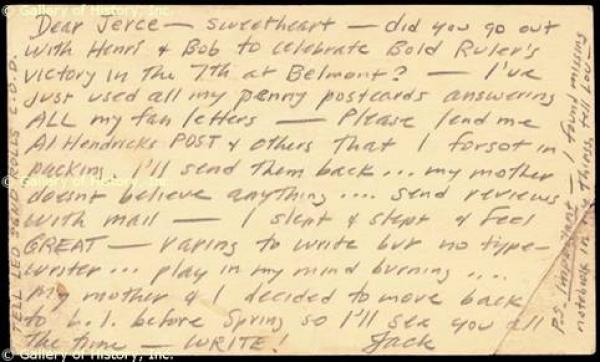 © Gallery of History, Inc.
Dear Jerce — sweetheart — did you go out
with Henri & Bob to celebrate Bold Ruler's
victory in the 7th at Belmont? — I've
just used all my penny postcards answering
ALL my fan letters — Please lend me
Al Hendricks POST & others that I forgot in
packing. I'll send them back... my mother
doesnt believe anything.... send reviews
with mail — I slept & slept & feel
GREAT — raring to write but no type-
writer... play in my mind burning....
my mother & I decided to move back
to L.I. before Spring so I'll see you all
the time — WRITE! Jack
TELL LEO SEND ROLLS C.O.D.
P.S. Important — I found missing
notebook in my things, tell Lou—
© Gallery of History, Inc.
© Gallery of History, Inc.